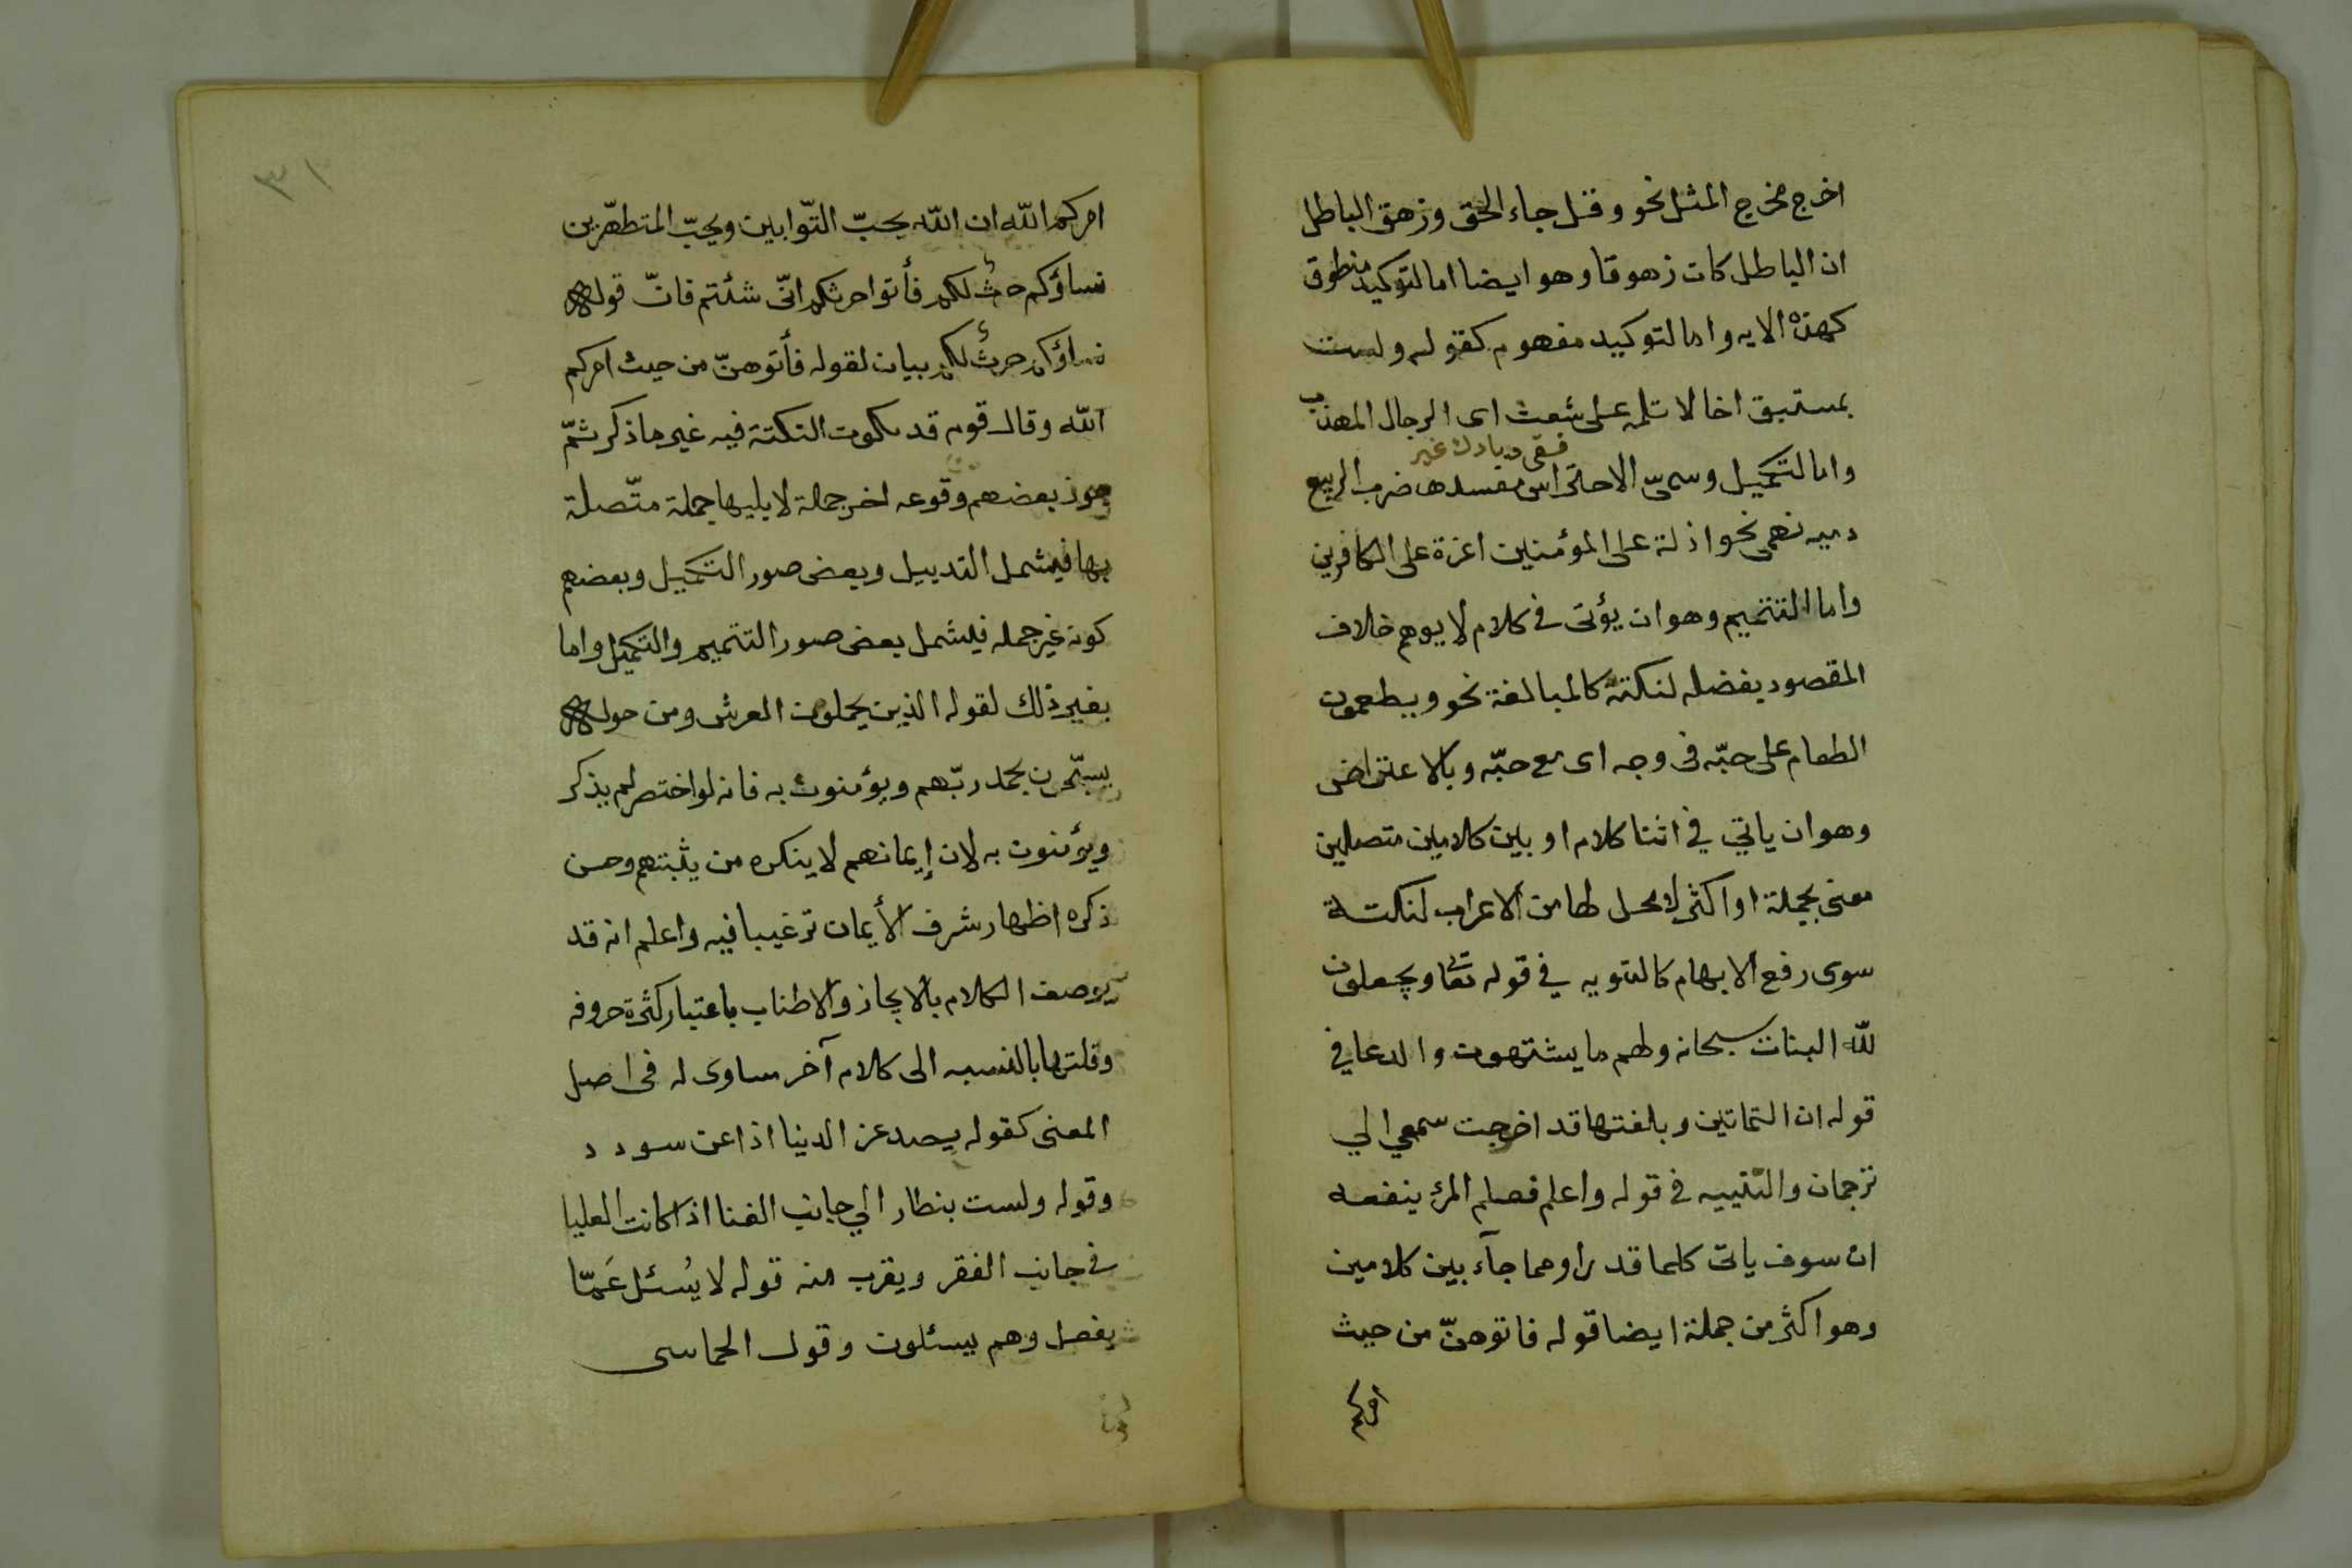 اخرج مخرج المثل نحو وقل جاء الحق وزهق الباطل
ان الباطل كان زهوقا وهو ايضا اما لتوكيد منطوق
كهذه الايه واما لتوكيد مفهوم كقوله ولست
بمستبق اخا لا تلمه على شعث اى الرجال المهذب
فسقى ديارك غير
واما لتكميل وسمىّ الاحتراس مفسدها ضرب الربيع
ديمه تهمى نحو اذلة على المؤمنين اعزة على الكافرين
واما التتميم وهو ان يؤتى فى كلام لا يوهم خلاف
المقصود بفضله لنكتة كالمبالغة نحو ويطعمون
الطعام على حبّه فى وجه اى مع حبّه وبالاعتراض
وهو ان ياتي في اثنا كلام او بين كلامين متصلين
معنى بجملة او اكثر لا محل لها من الاعراب لنكتة
سوى رفع الابهام كالتنويه في قوله تعا ويجعلون
للّه البنات سبحانه ولهم ما يشتهون والدعا في
قوله ان الثمانين وبلغتها قد احوجت سمعي الي
ترجمان والتنبيه فى قوله واعلم فعلم المرئ ينفعه
ان سوف ياتى كلما قدرا ومما جآء بين كلامين
وهو اكثر من جملة ايضا قوله فاتوهنّ من حيث
امركم
٣١
امركم اللّه ان اللّه يحبّ التّوابين ويحبّ المتطهّرين
نساؤكم حرث لكم فأتوا حرثكم انّى شئتم فانّ قوله
نساؤكم حرث لكم بيان لقوله فأتوهنّ من حيث امركم
اللّه وقال قوم قد يكون النكتة فيه غير ما ذكر ثمّ
جوز بعضهم وقوعه اخر جملة لا يليها جملة متّصلة
بها فيشمل التدييل وبعض صور التكميل وبعضهم
كونه غير جمله فيشمل بعض صور التتميم والتكميل واما
بغير ذلك لقوله الذين يحملون العرش ومن حوله
يسبّحون بحمد ربّهم ويؤمنون به فانه لو اختصر لم يذكر
ويؤمنون به لان إيمانهم لا ينكره من يثبتهم وحسن
ذكره اظهار شرف الأيمان ترغيبا فيه واعلم انه قد
يوصف الكلام بالايجاز والاطناب باعتبار كثرة حروفه
وقلتها بالنسبه الى كلام آخر مساوى له فى اصل
المعنى كقوله يصد عن الدنيا اذا عن سودد
وقوله ولست بنظار الي جانب الغنا اذا كانت العليا
في جانب الفقر ويقرب منه قوله لا يُسئل عَمّا
يفعل وهم يسئلون وقول الحماسى